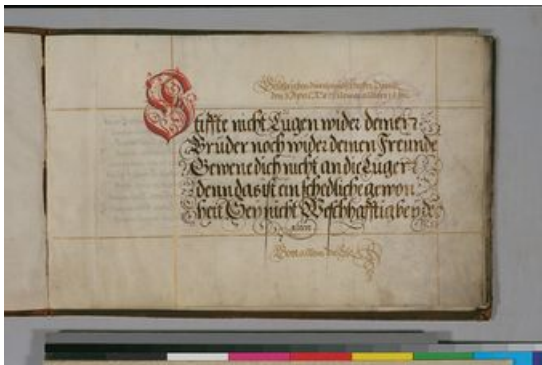 Stiffte nicht Lügen wider deinen
Bruder noch wider deinen Freunde
Gewene dich nicht an die Lügen
denn das ist ein schedliche gewon
heit Sey nicht Weschhafftig bey de
alten